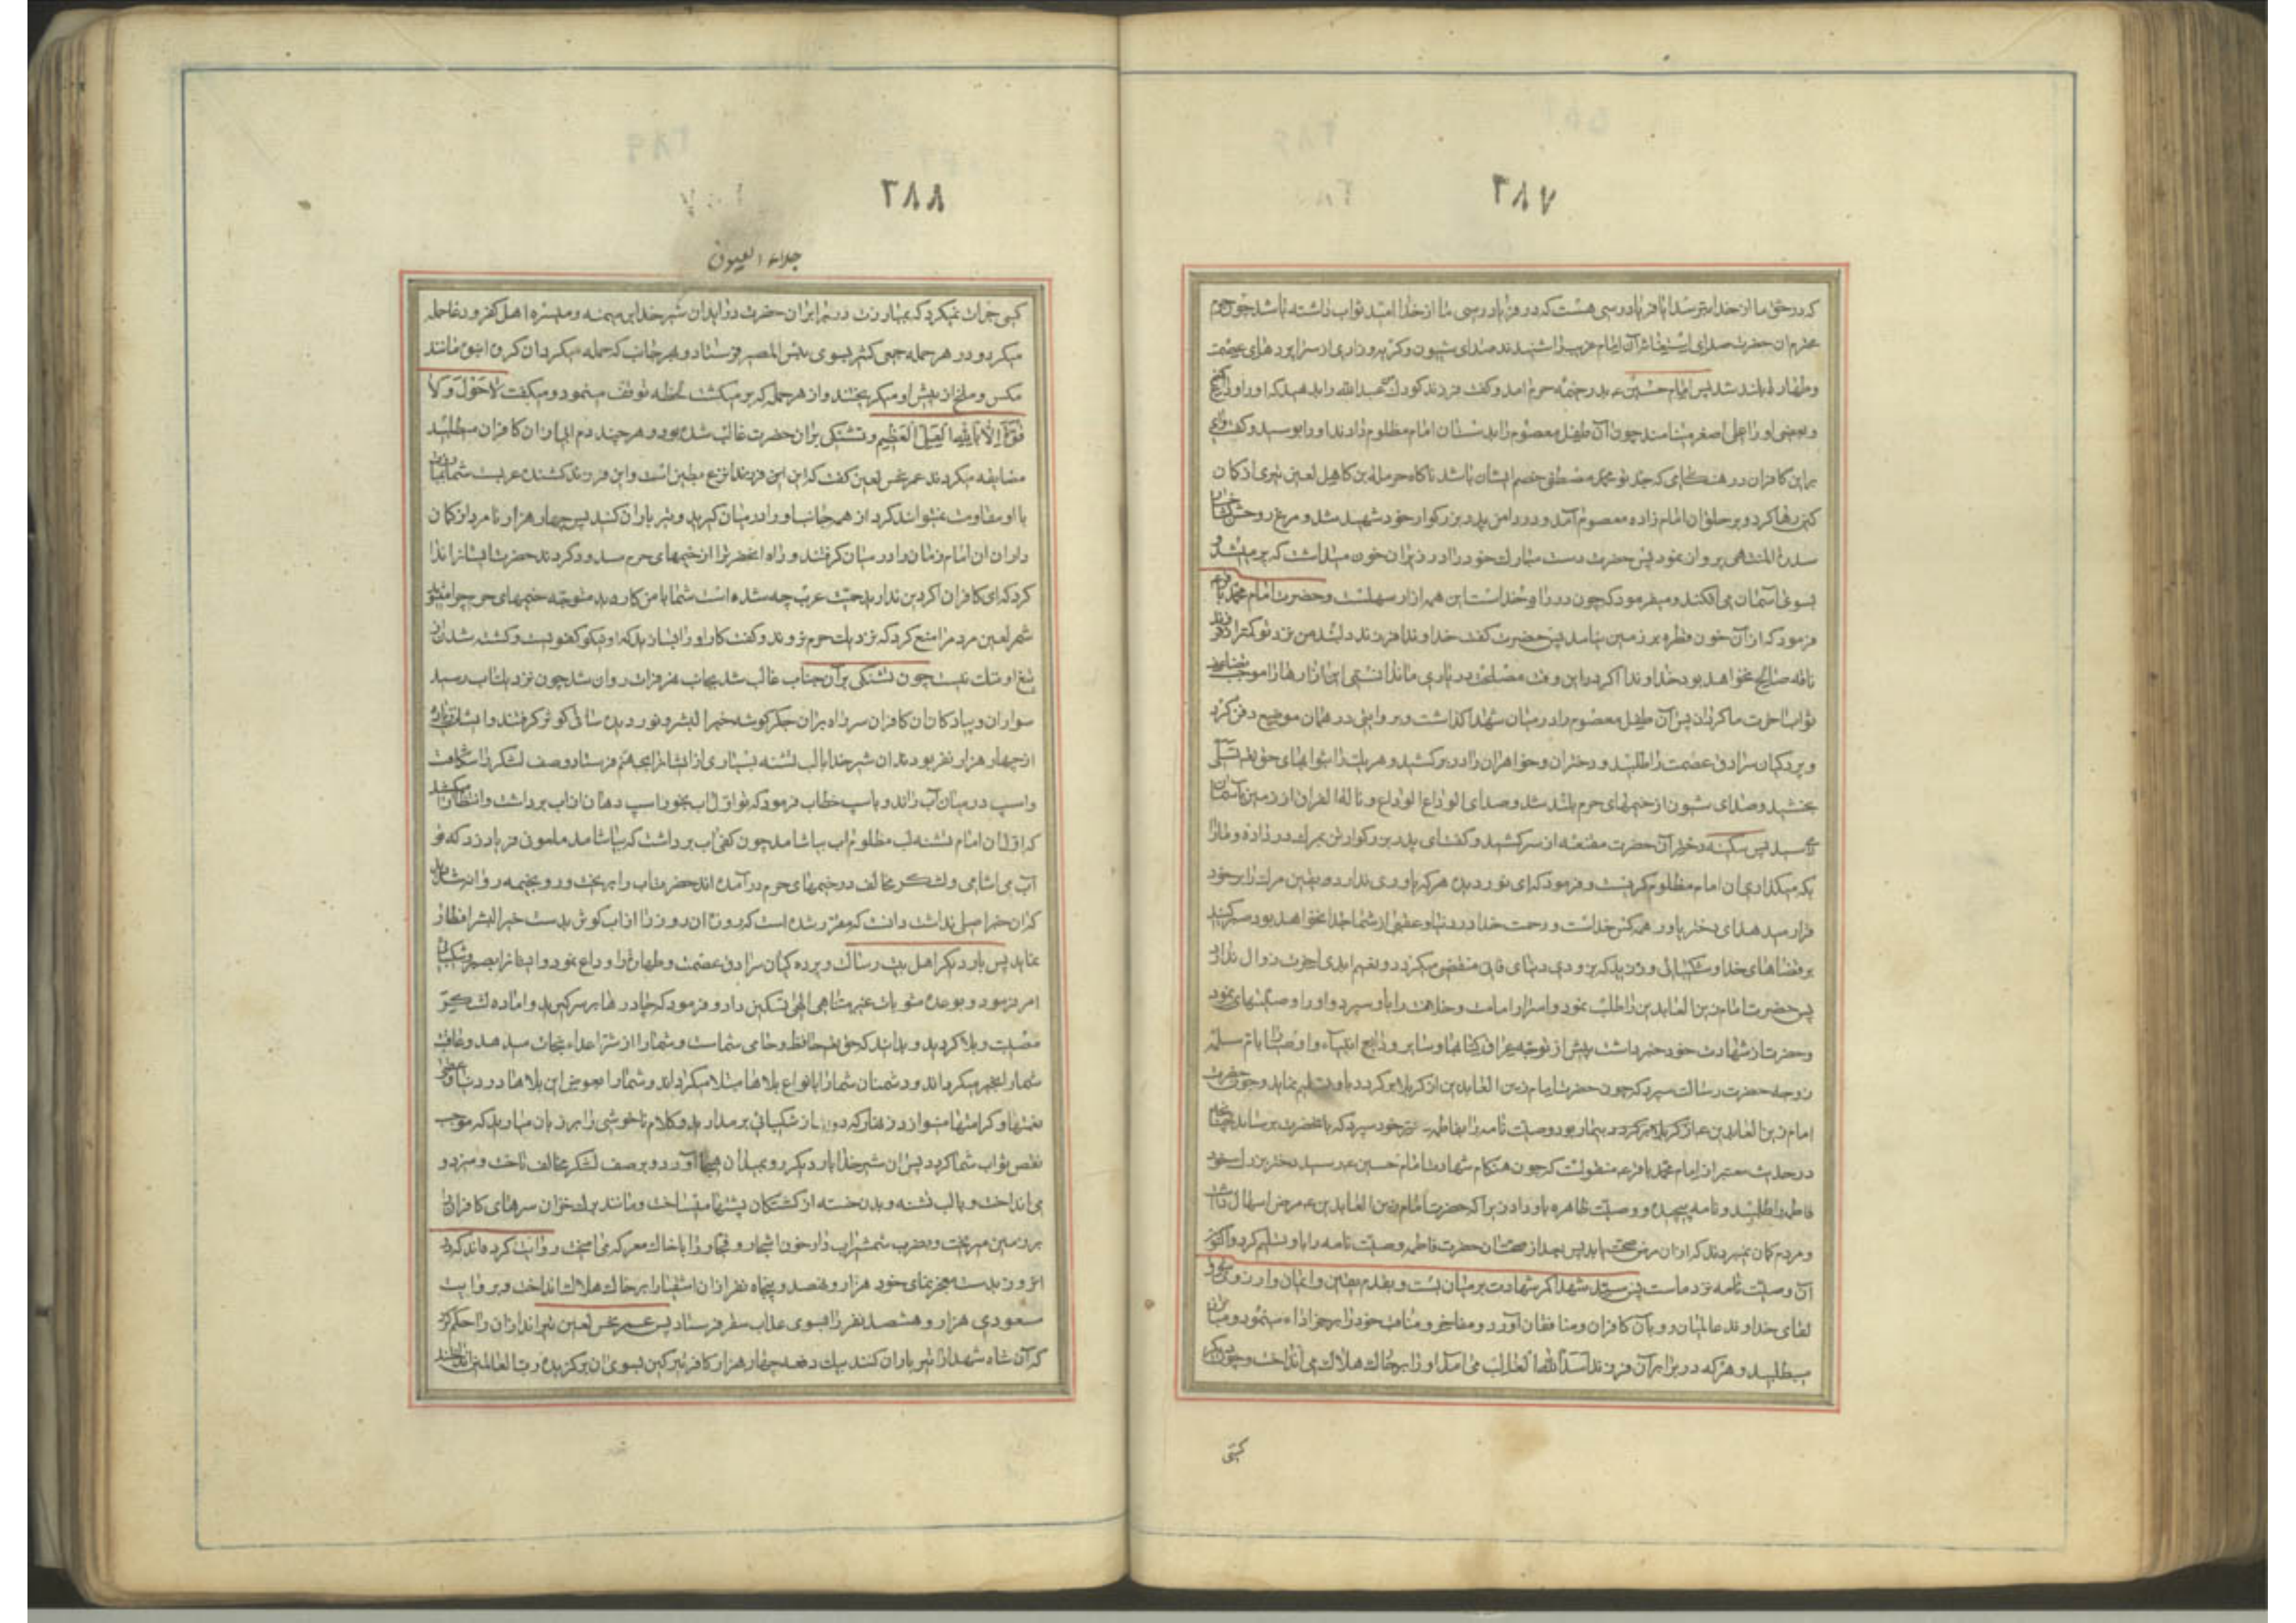 ۲۸۷
که در حق ما از خدا بترسد ایا فریادرسی هست که در فریادرسی ما از خدا امید ثواب داشته باشد چون حرم
محترم ان حضرت صدای استغاثه آن امام غریب را شنیدند صدای شیون و کریه و زاری از سرا پرده های عصمت
و طهارت بلند شد پس امام حسین ع بدر خیمه حرم امد و کفت فرزند کودک عبدالله را بدهید که اورا وداع کنم
و بعضی اورا علی اصغر مینامند چون آن طفل معصوم را بدستان امام مظلوم دادند اورا بوسید و کفت وای
بر این کافران در هنکامی که جد تو محمد مصطفی خصم ایشان باشد ناکاه حرملة بن کاهل لعین تیری از کمان
کین رها کرد و بر حلق ان امام زاده معصوم آمد و در دامن پدر بزرکوار خود شهید شد و مرغ روحش
سدرة المنتهی پرواز نمود پس حضرت دست مبارک خود را در زیر ان خون میداشت که پر میشد و
بسوی آسمان می افکند و میفرمود که چون در راه خداست این همه ازار سهلست و حضرت امام محمد باقر
فرمود که از آن خون قطره بر زمین نیامد پس حضرت کفت خداوندا فرزند دلبند من نزد تو کمتر از فرزند
ناقه صالح نخواهد بود خداوندا اکر در این وقت مصلحت در یاری ما ندانستی این ازارها را موجب
ثواب اخرت ما کردان پس آن طفل معصوم را در میان شهدا کذاشت و بروایتی در همان موضع دفن کرد
و پردکیان سرادق عصمت را طلبید و دختران و خواهران را در بر کشید و هر یک را بثوابهای حق تعالی تسلی
بخشید و صدای شیون از خیمهای حرم بلند شد و صدای الوداع الوداع و ناله الفراق از زمین بآسمان
میرسید پس سکینه دختر آن حضرت مقنعه از سر کشید و کفت ای پدر بزرکوار تن بمرک در داده و مارا
بکه میکذاری ان امام مظلوم کریست و فرمود که ای نور دیده هر که یاوری ندارد یقین مرک را بر خود
قرار میدهد ای دختر یاور همه کس خداست و رحمت خدا در دنیا و عقبی از شما جدا نخواهد بود صبر کنید
بر قضاهای خدا و شکیبائی ورزید که بزودی دنیای فانی منقضی میکردد و نعیم ابدی اخرت زوال ندارد
پس حضرت امام زین العابدین را طلب نمود و اسرار امامت و خلافت را باو سپرد و اورا وصیتهای نمود
و حضرت از شهادت خود خبر داشت پیش از توجه عراق کتابها و سایر ودایع انبیاء و اوصیا را بام سلمه
زوجه حضرت رسالت سپرد که چون حضرت امام زین العابدین از کربلا بر کردد باو تسلیم نماید و چون حضرت
امام زین العابدین ع از کربلا بر کردد بیمار بود وصیت نامه را بفاطمه دختر خود سپرد که بانحضرت برساند چنانچه
در حدیث معتبر از امام محمد باقر ع منقولست که چون هنکام شهادت امام حسین ع رسید دختر بزرک خود
فاطمه را طلبید و نامه پیچیده و وصیت ظاهره باو داد زیرا که حضرت امام زین العابدین ع مرض اسهال داشت
و مردم کمان نمیبردند که از ان مرض صحت یابد پس بعد از صحت ان حضرت فاطمه وصیت نامه را باو تسلیم کرد و اکنون
آن وصیت نامه نزد ماست پس سید شهدا کمر شهادت بر میان بست و بقدم یقین و ایمان و ارزوی
لقای خداوند عالمیان رو بآن کافران و منافقان آورد و مفاخر و مناقب خود را برجز اداء مینمود و مبارز
میطلبید و هر که در برابر آن فرزند اسدالله الغالب می آمد اورا بر خاک هلاک می انداخت و چون دیکر
کسی
۲۸۸
جلاء العیون
کسی جرات نمیکرد که بمبارزت در برابر ان حضرت در اید ان شیر خدا بر میمنه و میسره اهل کفر و دغا حمله
میکرد و در هر حمله جمعی کثیر بسوی بئس المصیر فرستاد و بهر جانب که حمله میکرد ان کروه انبوه مانند
مکس و ملخ از پیش او میکریختند و از هر حمله که بر میکشت لحظه توقف مینمود و میکفت لا حول ولا
قوة الا بالله العلی العظیم و تشنکی بران حضرت غالب شده بود و هر چند دم ابی از ان کافران میطلبید
مضایقه میکردند عمر نحس لعین کفت که این ابن فرزند انزع بطین است و این فرزند کشنده عربست شما
با او مقاومت نمیتوانید کرد از همه جانب اورا در میان کیرید و تیرباران کنید پس چهار هزار نامرد از کمان
داران ان امام زمان را در میان کرفتند و راه انحضرت را از خیمهای حرم مسدود کردند حضرت ایشانرا ندا
کرد که ای کافران اکر دین ندارید حمیت عرب چه شده است شما با من کار دارید متوجه خیمهای حرم چرا میشوید
شمر لعین مردم را منع کرد که نزدیک حرم نروند و کفت کار او را بسازید که او نیکو کفویست و کشته شدن از
تیغ او ننک نیست چون تشنکی بر آن جناب غالب شد بجانب نهر فرات روان شد چون نزدیک اب رسید
سواران و پیادکان ان کافران سر راه بران جکر کوشه خیر البشر و نور دیده ساقی کوثر کرفتند و ایشان زیاده
از چهار هزار نفر بودند ان شیر خدا با لب تشنه بسیاری از ایشانرا بجهنم فرستاد و صف لشکر را شکافت
و اسپ در میان آب راند و باسپ خطاب فرمود که تو اول اب بخور اسپ دهان از اب برداشت و انتظار میکشید
که اول ان امام تشنه لب مظلوم اب بیاشامد چون کفی اب برداشت که بیاشامد ملعونی فریاد زد که تو
آب می اشامی و لشکر مخالف در خیمهای حرم درآمده اند حضرت اب را بریخت و رو بخیمه روانه شد
که ان خبر اصلی نداشت دانست که مقرر شده است که روزه ان روز را از اب کوثر بدست خیر البشر افطار
نماید پس بار دیکر اهل بیت رسالت و پرده کیان سرادق عصمت و طهارت را وداع نمود و ایشانرا بصبر و شکیبائی
امر فرمود و بوعده مثوبات غیر متناهی الهی تسکین داد و فرمود که چادرها بر سر کیرید و اماده لشکر
مصیبت و بلا کردید و بدانید که حق تعالی حافظ و حامی شماست و شما را از شر اعداء نجات میدهد و عاقبت
شما را بخیر میکرداند و دشمنان شما را بانواع بلاها مبتلا میکرداند و شما را بعوض این بلاها در دنیا و عقبی
نعمتها و کرامتها مینوازد زنهار که دست از شکیبائی بر مدارید و کلام ناخوشی را بر زبان میارید که موجب
نقص ثواب شما کردد پس ان شیر خدا بار دیکر رو بمیدان هیجا آورد و بر صف لشکر مخالف تاخت و میزد و
می انداخت و با لب تشنه و بدن خسته از کشتکان پشتها میساخت و مانند برک خزان سرهای کافران
بر زمین میریخت و بضرب شمشیر اب دار خون اشرار و فجار را با خاک معرکه می امیخت روایت کرده اند که در
انروز بدست معجز نمای خود هزار و نهصد و پنجاه نفر از ان اشقیا را بر خاک هلاک انداخت و بروایت
مسعودی هزار و هشتصد نفر را بسوی عذاب سقر فرستاد پس عمر نحس لعین تیراندازان را حکم کرد
که آن شاه شهدا را تیرباران کنند بیک دفعه چهار هزار کافر تیر کین بسوی ان برکزیده رب العالمین انداختند